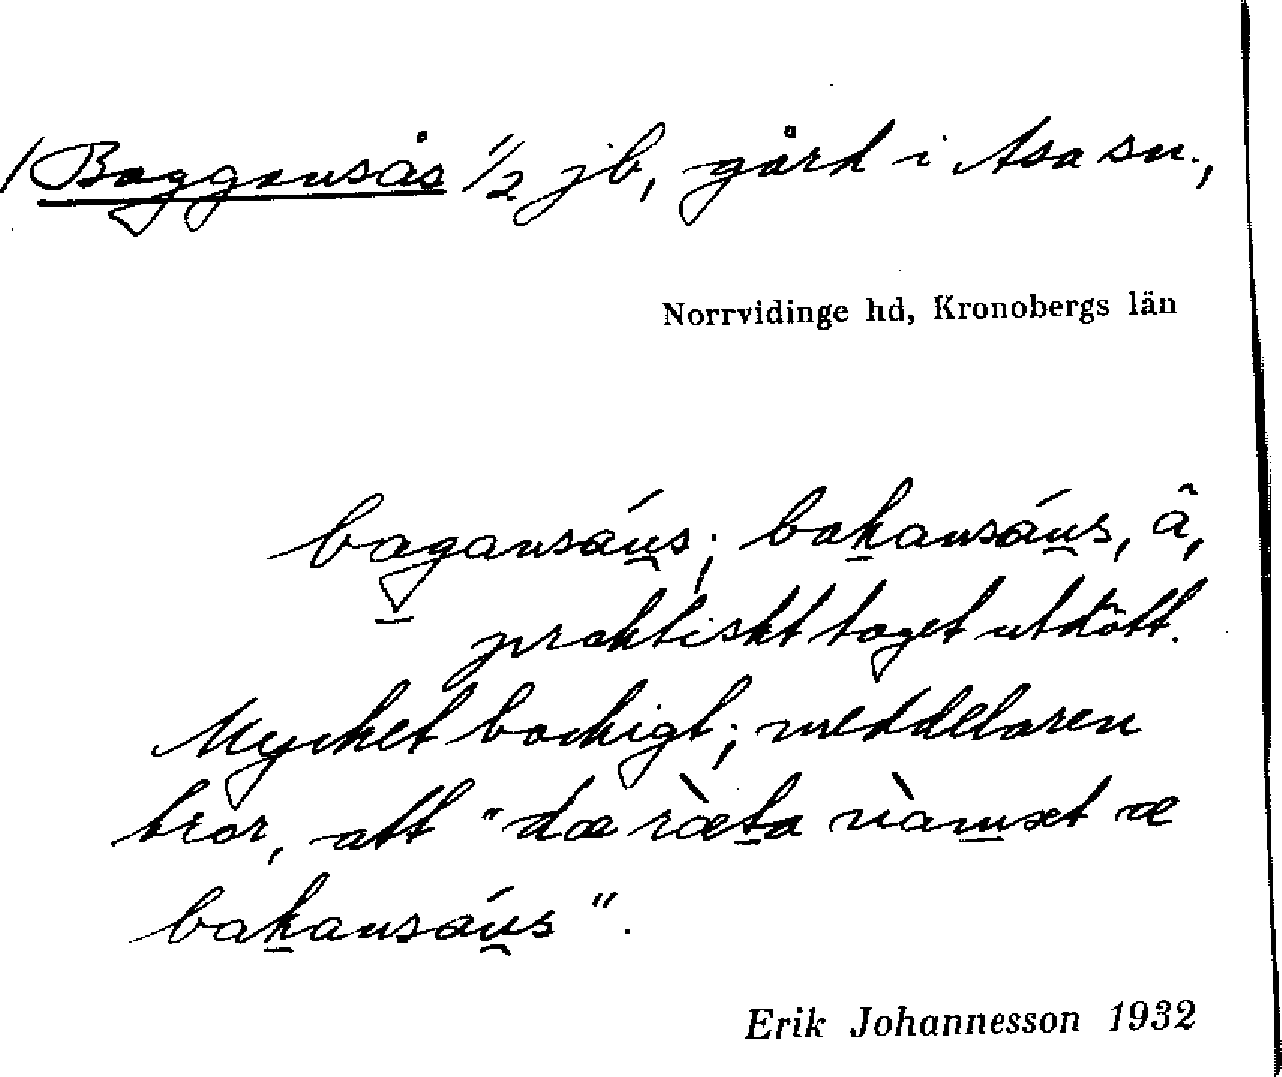 / Baggansås 1/2 jb, gård i Asa sn.,
Norrvidinge hd, Kronobergs län
bagansáu̯s; bakansáu̯s, â,
praktiskt taget utdött.
Mycket backigt; meddelaren
tror, att "dæ ræ̀ta nàmnet æ
bakansáu̯s".
Erik Johannesson 1932